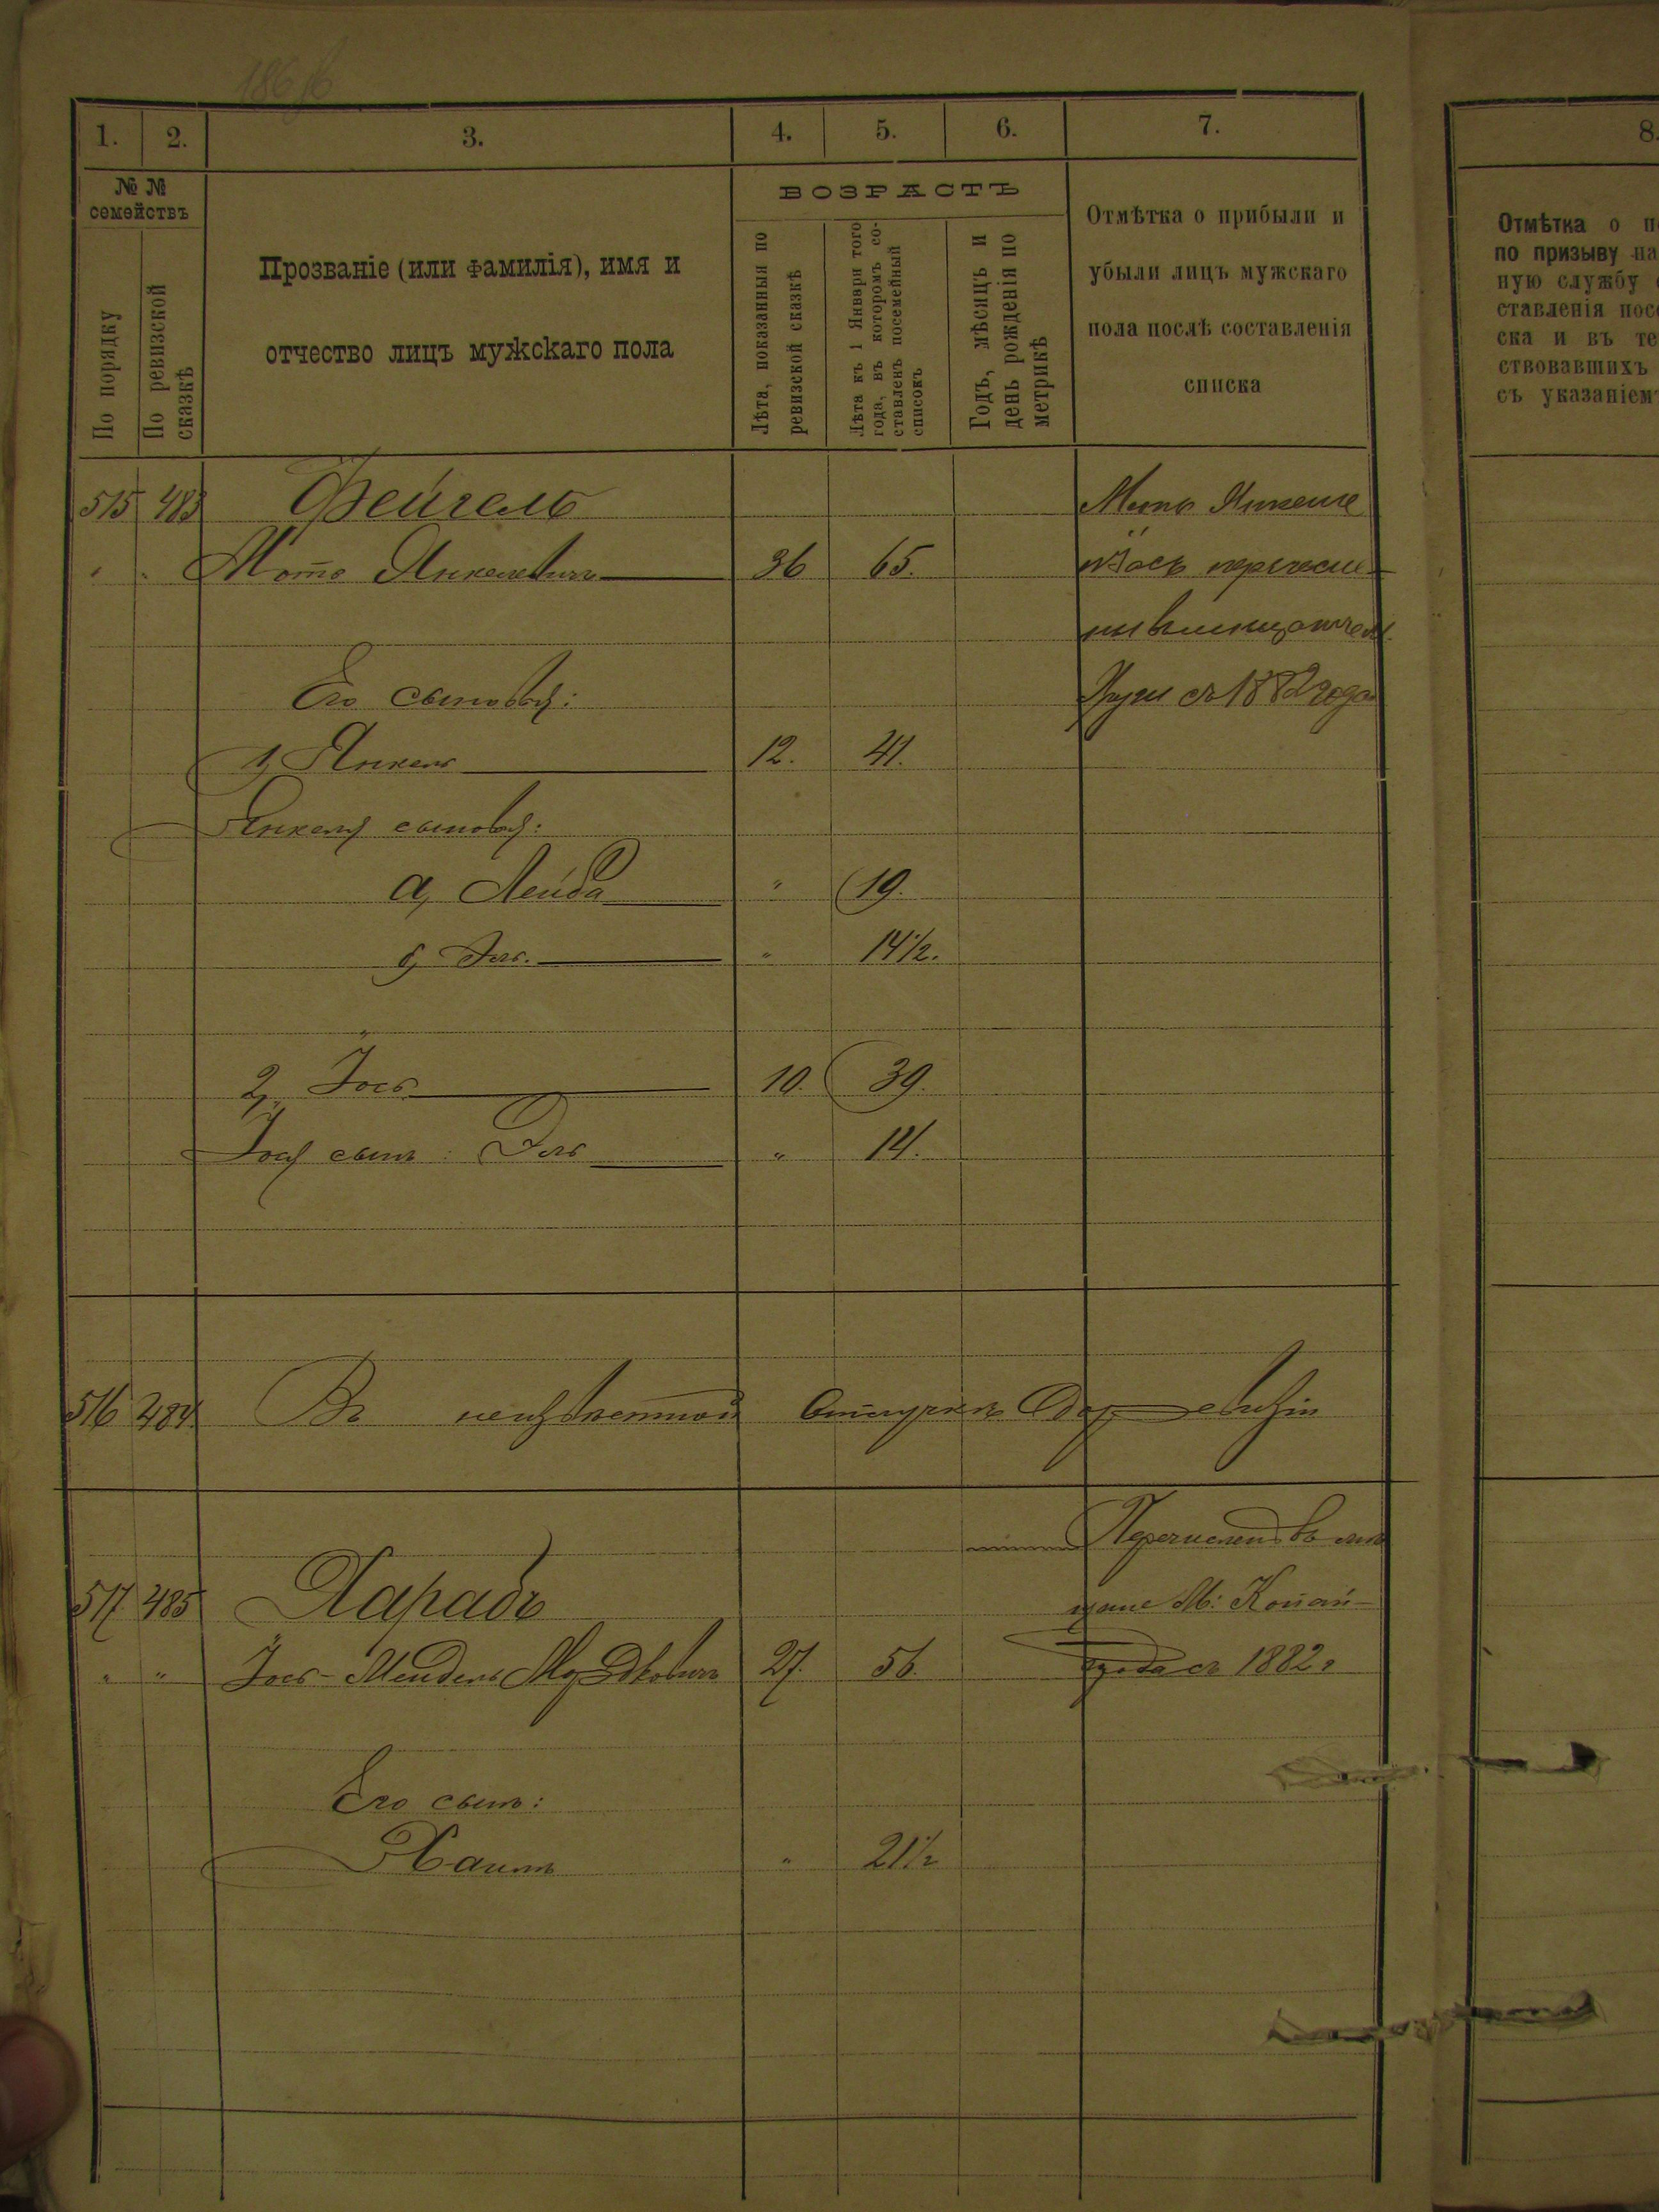 1. 2. 3. 4. 5. 6. 7.
№ №
семействъ
По порядку
По ревизской сказкѣ
Прозваніе (или фамилія), имя и
отчество лицъ мужскаго пола
ВОЗРАСТЪ
Лѣта, показанныя по
ревизской сказкѣ
Лѣта къ 1 Января того
года, въ которомъ со-
ставленъ посемейный
списокъ
Годъ, мѣсяцъ и
день рожденія по
метрикѣ
Отмѣтка о прибыли и
убыли лицъ мужскаго
пола послѣ составленія
списка
8.
Отмѣтка о
по призыву на
ную службу
ставленія посе
ска и въ те
ствовавшихъ
съ указаніем
515 483 Фейгель
" " Мотя Янкелевичъ 36 65. Іось перечисле-
ны
Его сыновья: съ 1882 года
1, Янкель 12. 41.
Янкеля сыновья:
а, Лейба " 19.
б, Эль. " 14½.
2, Іось 10. 39.
Іося сынъ: Эль " 14.
516 484. Въ неизвѣстной отлучкѣ до ревизіи
Перечислен въ мѣ
517 485 Харабъ щане М: Копай-
" " Іось-Мендель Мордковичъ 27. 56. города съ 1882 г
Его сынъ:
Хаимъ " 21½